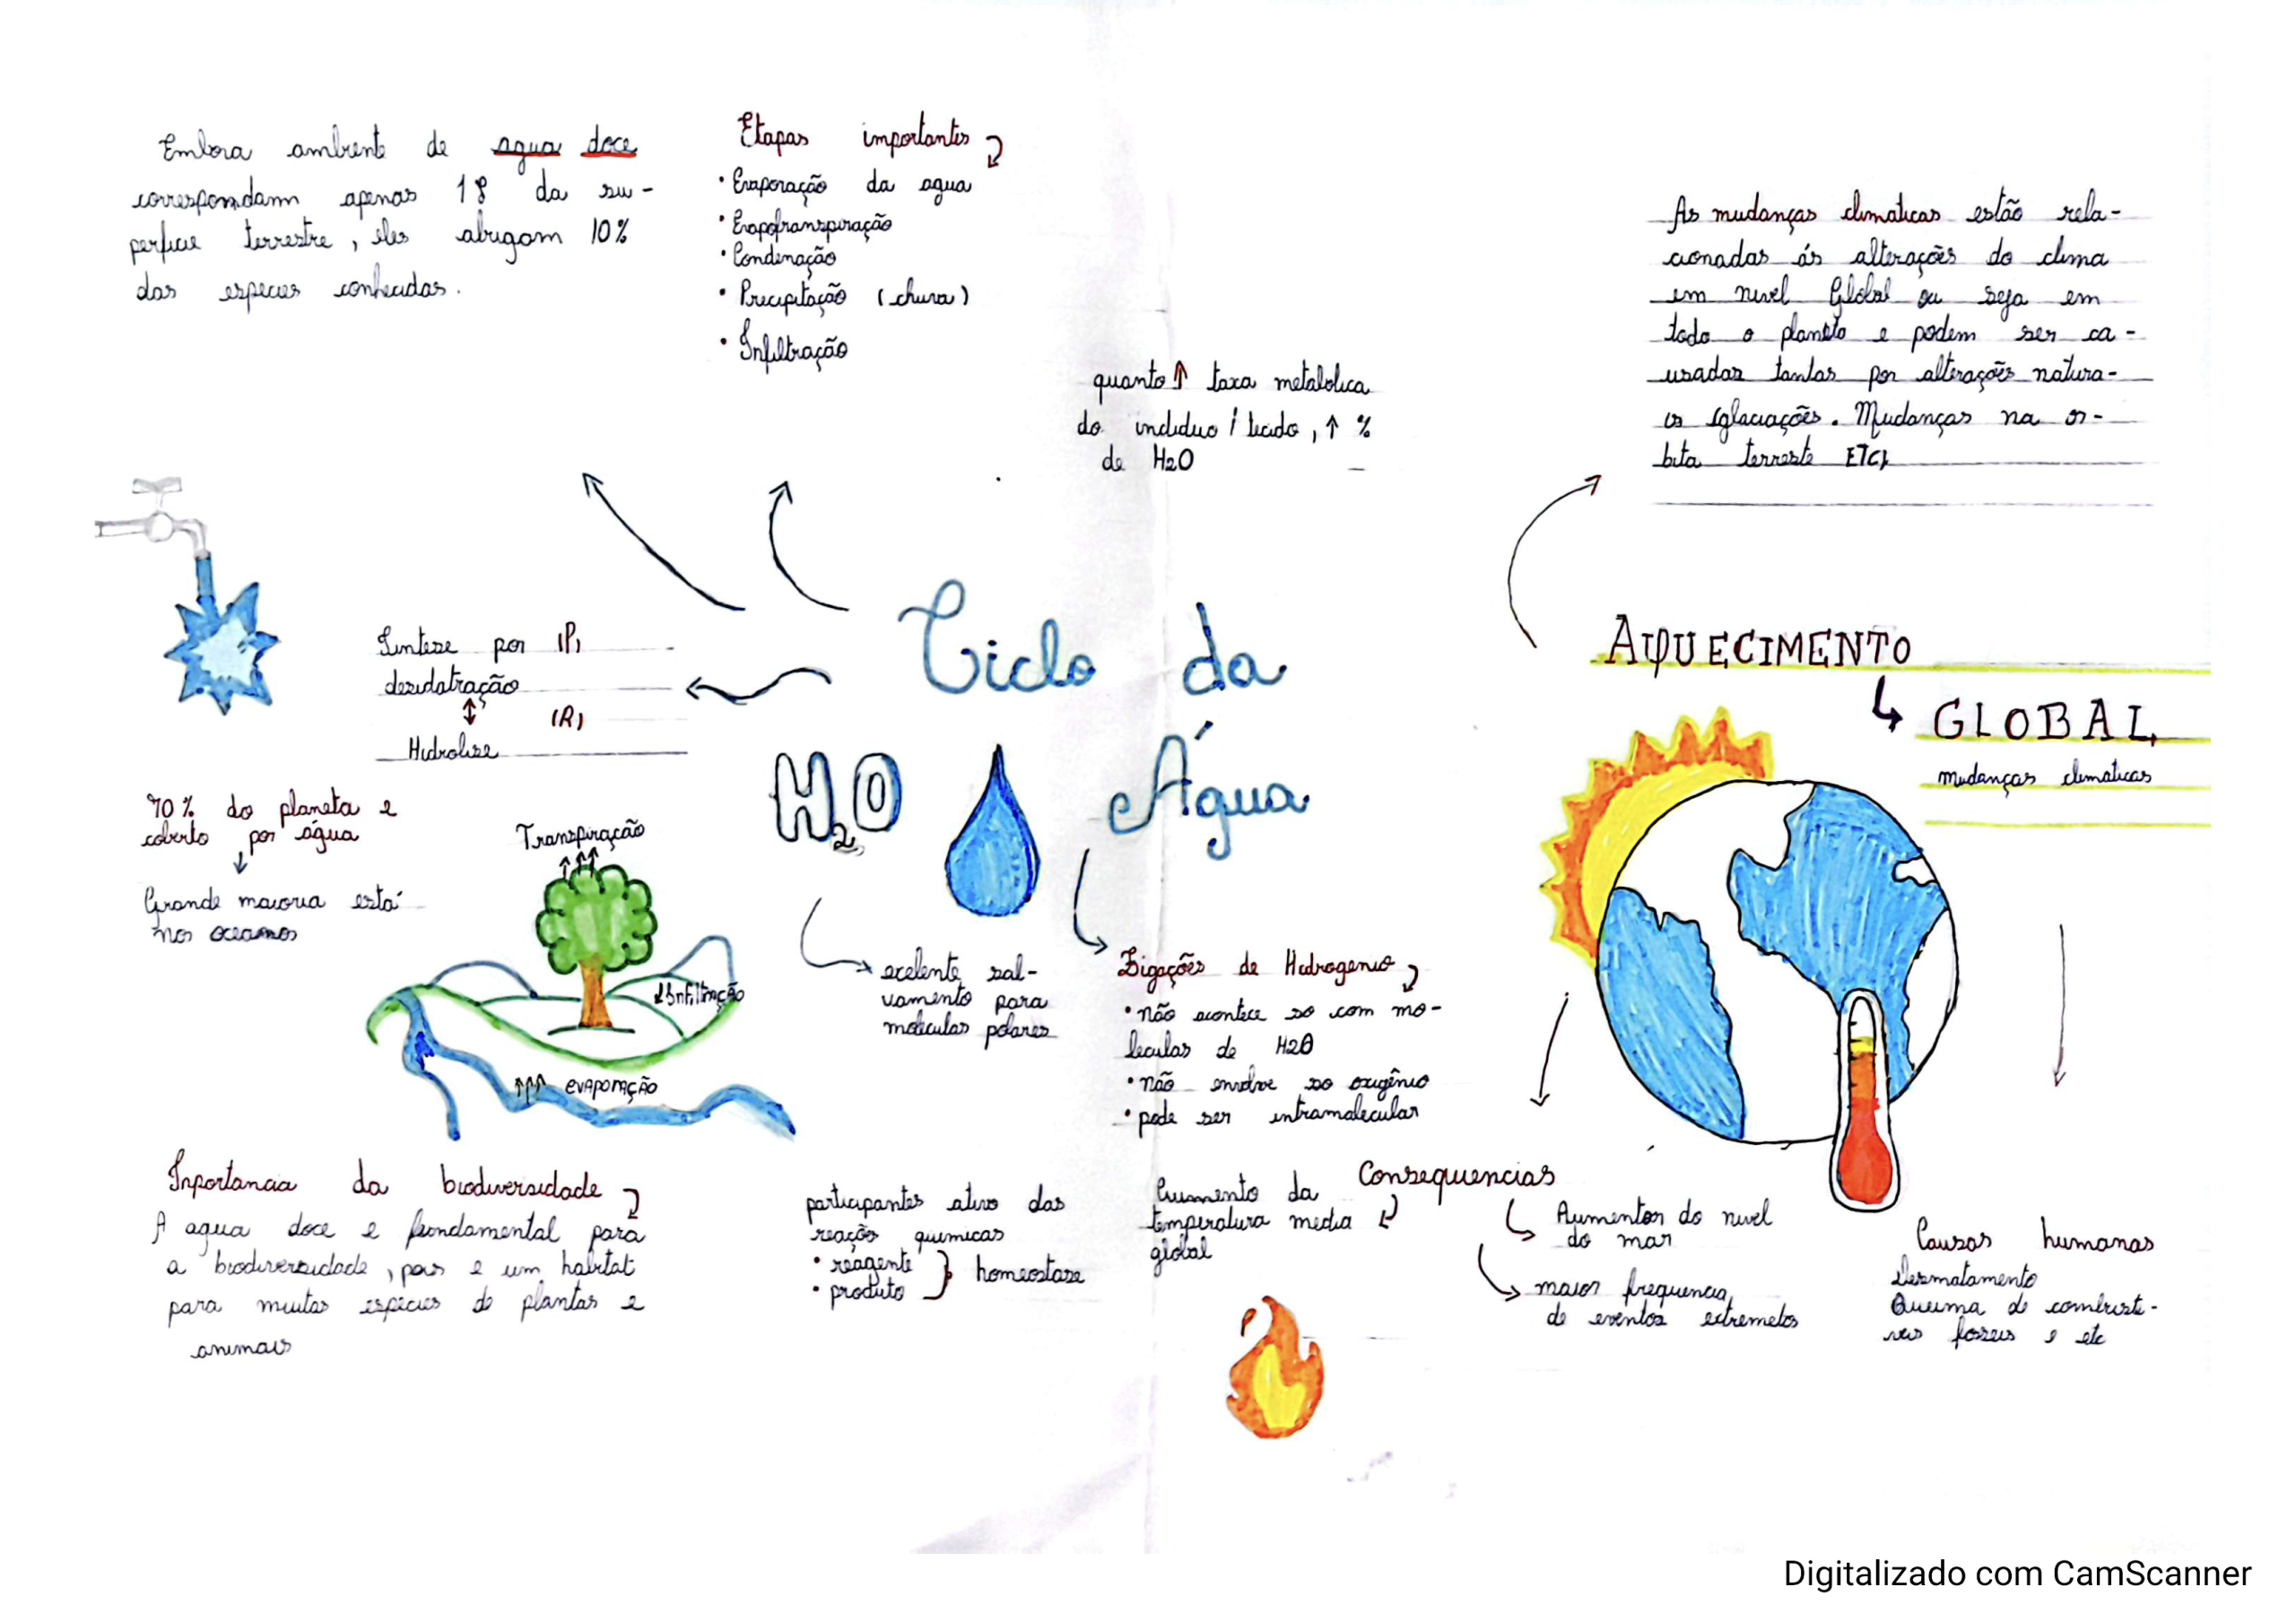 Embora ambiente de agua doce
correspondam apenas 1% da su-
perficie terrestre, eles abrigam 10%
das especies conhecidas.
Etapas importantes
• Evaporação da agua
• Evapotranspiração
• Condenação
• Precipitação (chuva)
• Infiltração
quanto ↑ taxa metabolica
do individuo / tecido, ↑ %
de H2O
As mudanças climaticas estão rela-
cionadas ás alterações do clima
em nivel Global ou seja em
todo o planeta e podem ser ca-
usadas tantas por alterações natura-
is (glaciações. Mudanças na or-
bita terreste ETC)
Sintese por (P)
desidatração
(R)
Hidrolise
Ciclo da
Água
H2O
AQUECIMENTO
GLOBAL
mudanças climaticas
70% do planeta e
coberto por água
Grande maioria está
nos oceanos
Transpiração
Infiltração
evaporação
excelente sol-
vamento para
moleculas polares
Ligações de Hidrogenio
• não acontece so com mo-
leculas de H2O
• não envolve so oxigênio
• pode ser intramolecular
Inportancia da biodiversidade
A agua doce e fundamental para
a biodiversidade, pois e um habitat
para muitas espécies de plantas e
animais
participantes ativo das
reação quimicas
• reagente
• produto
homeostase
Consequencias
Aumento da
temperatura media
global
Aumentor do nivel
do mar
maior frequencia
de eventos extremetos
Causas humanas
Desmatamento
Queima de combusti-
veis fosseis e etc
Digitalizado com CamScanner